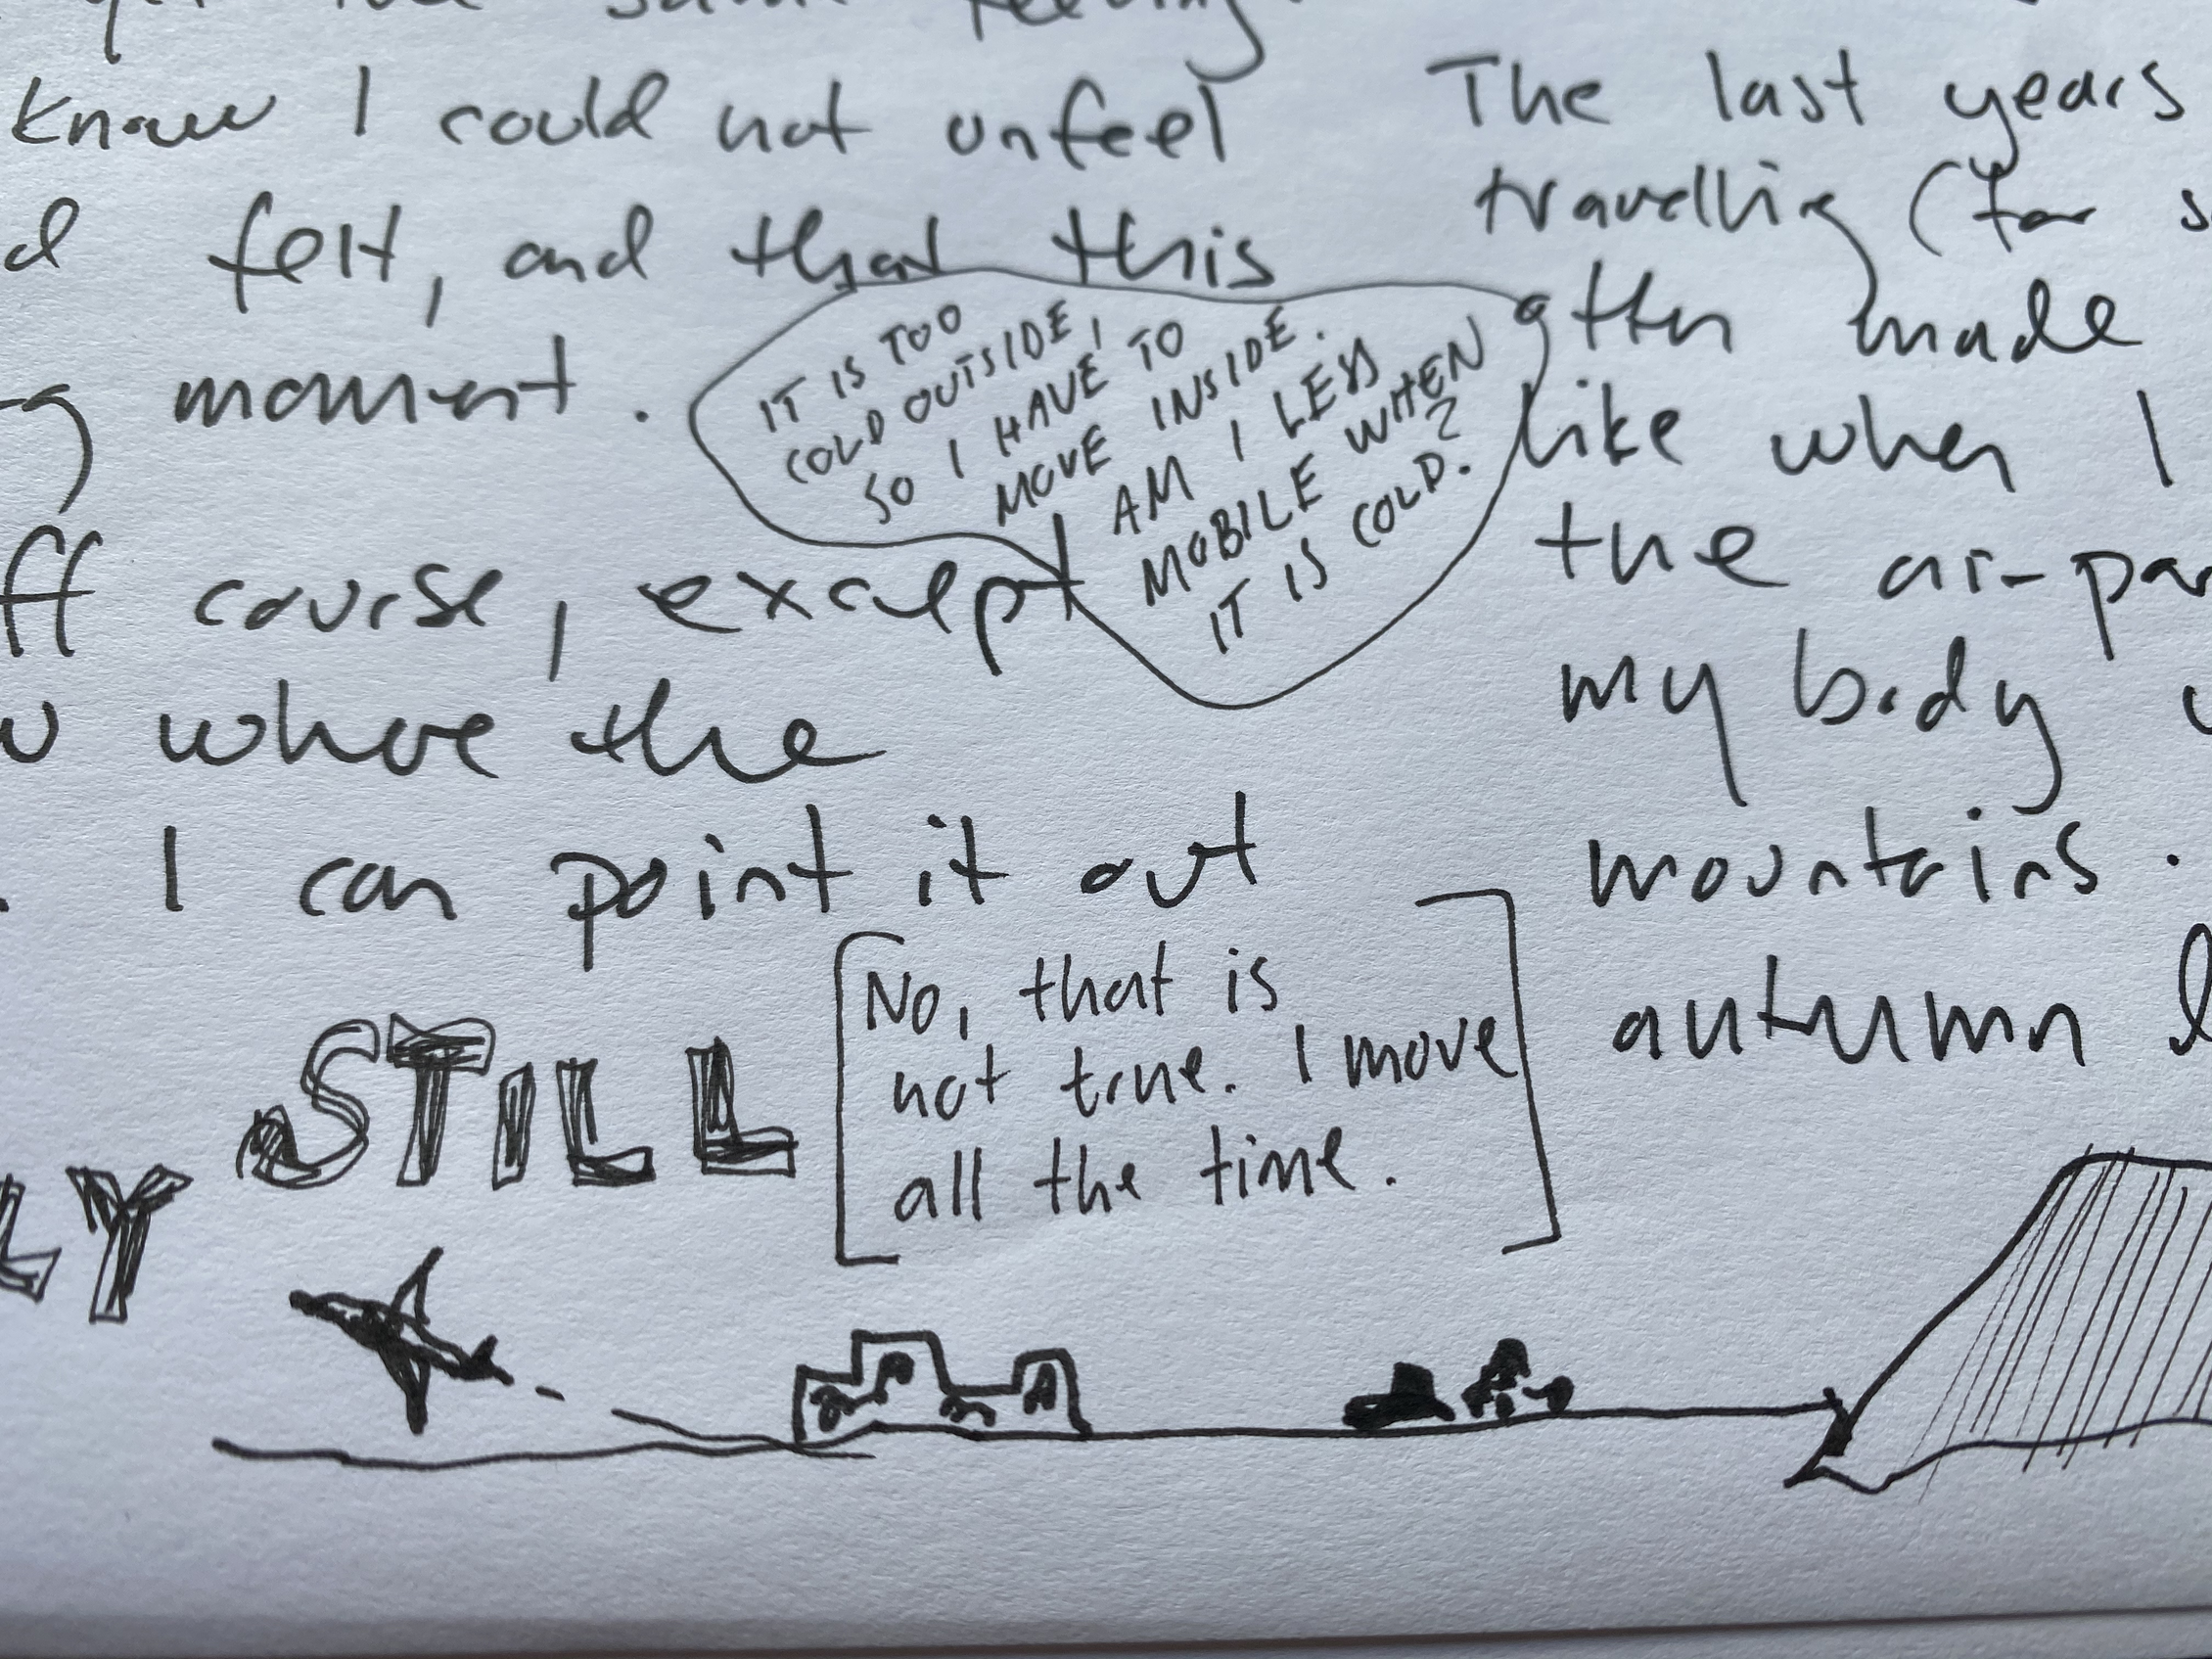 know I could not unfeel
d felt, and that this
moment.
IT IS TOO
COLD OUTSIDE,
SO I HAVE TO
MOVE INSIDE.
AM I LESS
MOBILE WHEN
IT IS COLD?
ff course, except
where the
. I can point it out
STILL
LY
[No, that is
not true. I move
all the time.]
The last years
travelling (for s
often made
like when I
the air-pa
my body
mountains.
autumn l